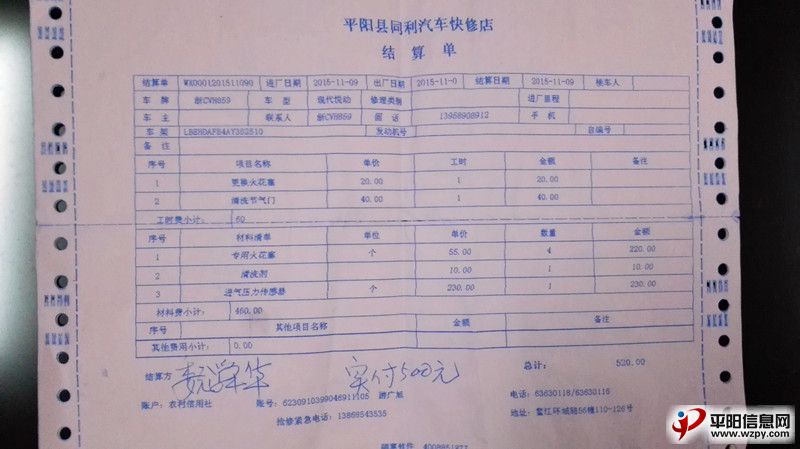 平阳县同利汽车快修店
结 算 单
结算单 WX00012015111090 进厂日期 2015-11-09 出厂日期 2015-11-0 结算日期 2015-11-09 接车人
车 牌 浙CVH859 车 型 现代悦动 修理类别 进厂里程
车 主 联系人 浙CVH859 电 话 13958908912 手 机
车架 发动机号 自编号
备 注
序号 项目名称 单价 工时 金额 备注
1 更换火花塞 20.00 1 20.00
2 清洗节气门 40.00 1 40.00
工时费小计: 60
序号 材料清单 单位 单价 数量 金额
1 专用火花塞 个 55.00 4 220.00
2 清洗剂 10.00 1 10.00
3 进气压力传感器 个 230.00 1 230.00
材料费小计: 460.00
序号 其他项目名称 金额 备注
其他费用小计: 0.00
总计: 520.00
结算方 实付500元
账户: 农村信用社 账号: 6230910399046911105 游广旭 电话: 63630118/63630116
抢修紧急电话: 13868543535 地址: 鳌江环城路56幢110-126号
平阳信息网
www.wzpy.com